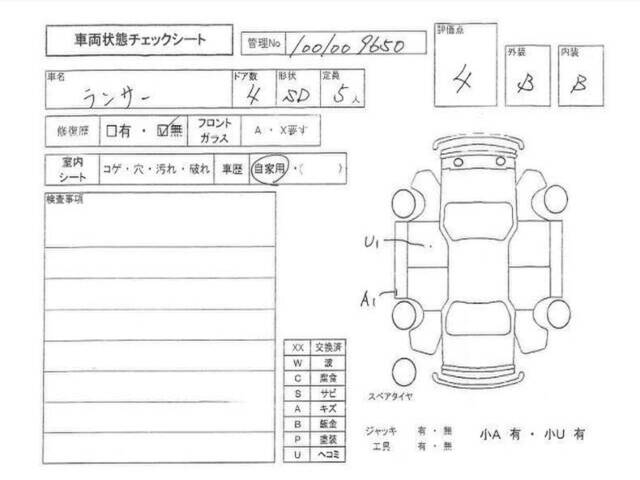 車両状態チェックシート
管理No 100100 9650
評価点 4
外装 B
内装 B
車名 ランサー
ドア数 4
形状 SD
定員 5人
修復歴 □有・☑無
フロントガラス A ・ X要す
室内シート コゲ・穴・汚れ・破れ
車歴 自家用・( )
検査事項
U1
A1
XX 交換済
W 波
C 腐食
S サビ
A キズ
B 鈑金
P 塗装
U ヘコミ
スペアタイヤ
ジャッキ 有・無
工具 有・無
小A 有・小U 有